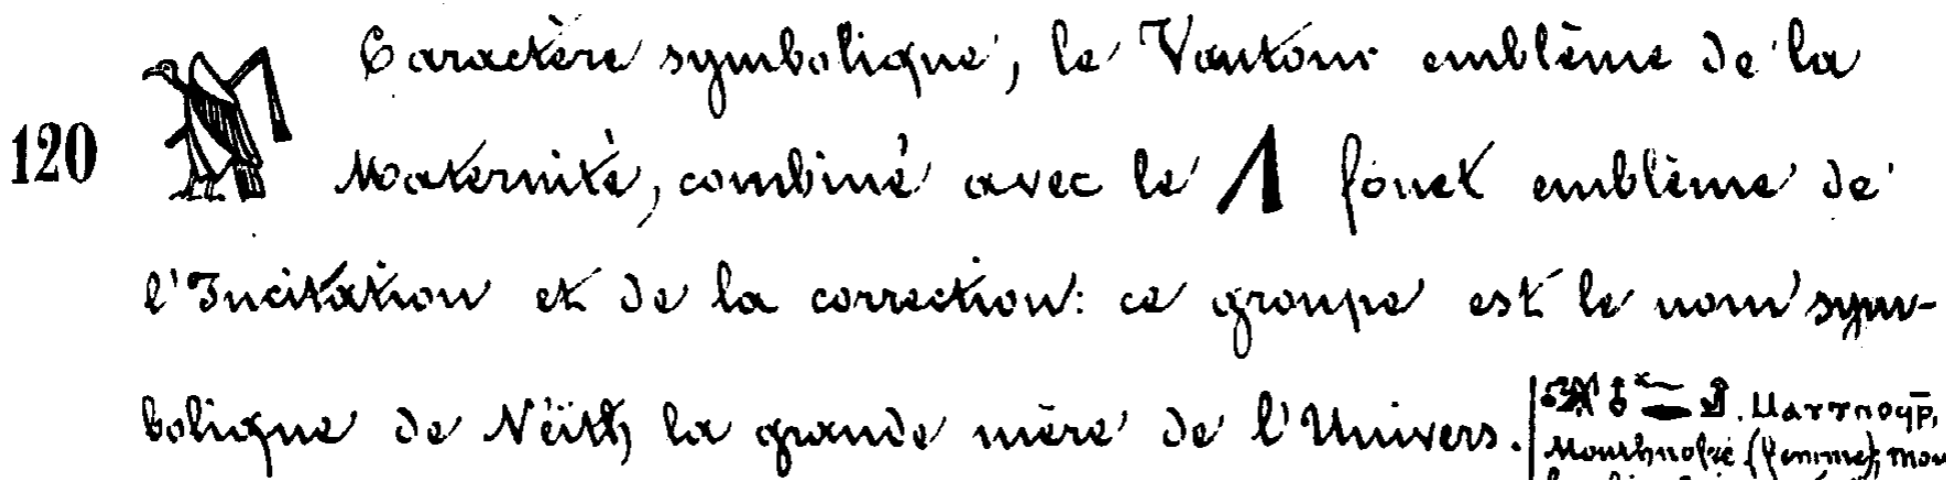 Caractère symbolique, le Vautour emblème de la
120
Maternité, combiné avec le fouet emblème de
l'Incitation et de la correction: ce groupe est le nom sym-
bolique de Néïth, la grande mère de l'Univers.
Mouthnofré (femme), mou